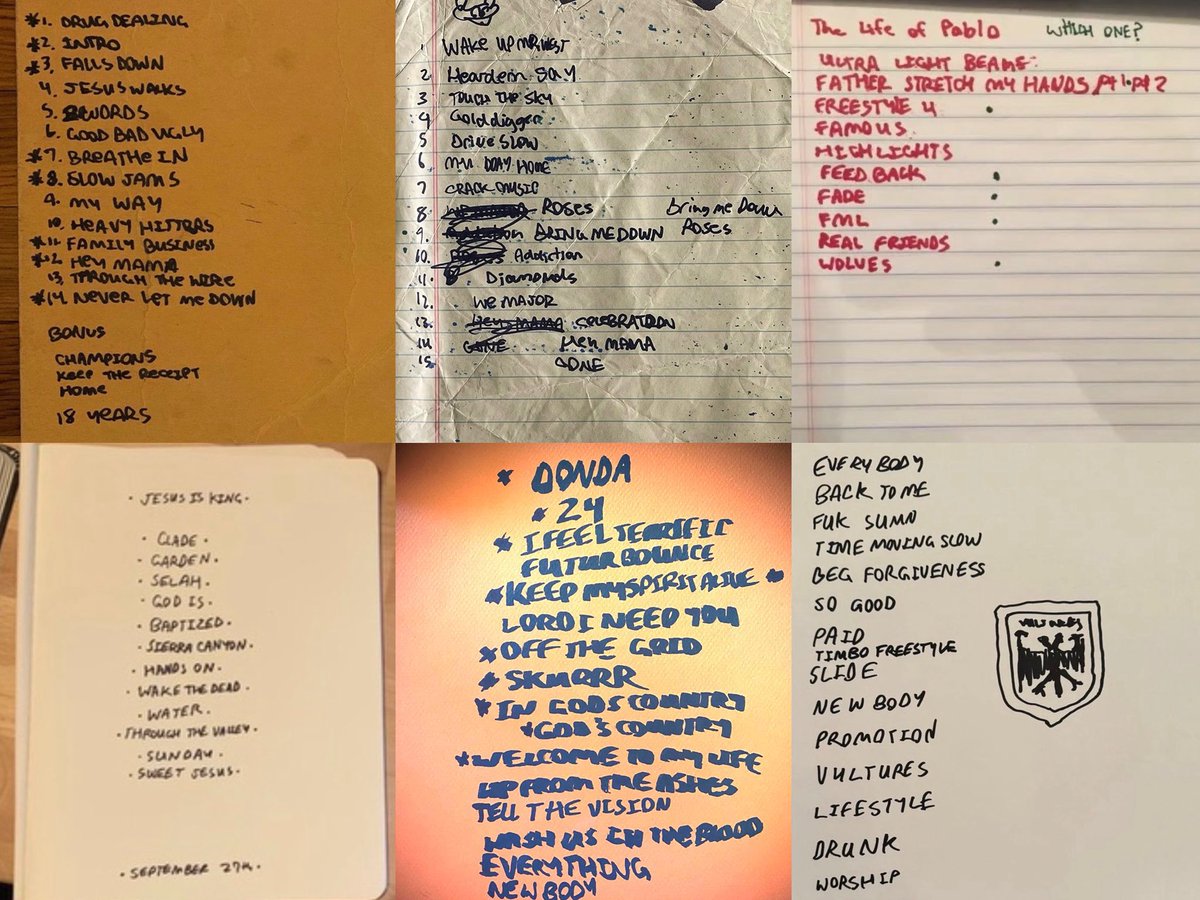 *1. DRUG DEALING
*2. INTRO
*3. FALLS DOWN
4. JESUS WALKS
5. WORDS
6. GOOD BAD UGLY
*7. BREATHE IN
*8. SLOW JAMS
9. MY WAY
10. HEAVY HITTERS
*11. FAMILY BUSINESS
*12 HEY MAMA
13. THROUGH THE WIRE
*14. NEVER LET ME DOWN
BONUS
CHAMPIONS
KEEP THE RECEIPT
HOME
18 YEARS
1 WAKE UP MR WEST
2. Heardem SAY
3 TOUCH THE SKY
4 Golddigger
5 DRIVE SLOW
6 MY WAY HOME
7 CRACK MUSIC
8. ROSES Bring me Down
9. BRING ME DOWN ROSES
10. Addiction
11. Diamonds
12. We MAJOR
13. HEY MAMA CELEBRATION
14 GONE Hey MAMA
15 GONE
The Life of Pablo WHICH ONE?
ULTRA LIGHT BEAMS
FATHER STRETCH MY HANDS, Pt 1. Pt 2
FREESTYLE 4 •
FAMOUS
HIGHLIGHTS
FEED BACK •
FADE •
FML •
REAL FRIENDS
WOLVES •
• JESUS IS KING •
• CLADE •
• GARDEN •
• SELAH •
• GOD IS •
• BAPTIZED •
• SIERRA CANYON •
• HANDS ON •
• WAKE THE DEAD •
• WATER •
• THROUGH THE VALLEY •
• SUNDAY •
• SWEET JESUS •
• SEPTEMBER 27th •
* DONDA
* 24
* I FEEL TERRIFIC
FUTUR BOUNCE
* KEEP MY SPIRIT ALIVE *
LORD I NEED YOU
* OFF THE GRID
* SKURRR
* IN GODS COUNTRY
* GOD'S COUNTRY
* WELCOME TO MY LIFE
UP FROM THE ASHES
TELL THE VISION
WASH US IN THE BLOOD
EVERYTHING
NEW BODY
EVERYBODY
BACK TO ME
FUK SUMN
TIME MOVING SLOW
BEG FORGIVENESS
SO GOOD
PAID
TIMBO FREESTYLE
SLIDE
NEW BODY
PROMOTION
VULTURES
LIFESTYLE
DRUNK
WORSHIP
VULTURES